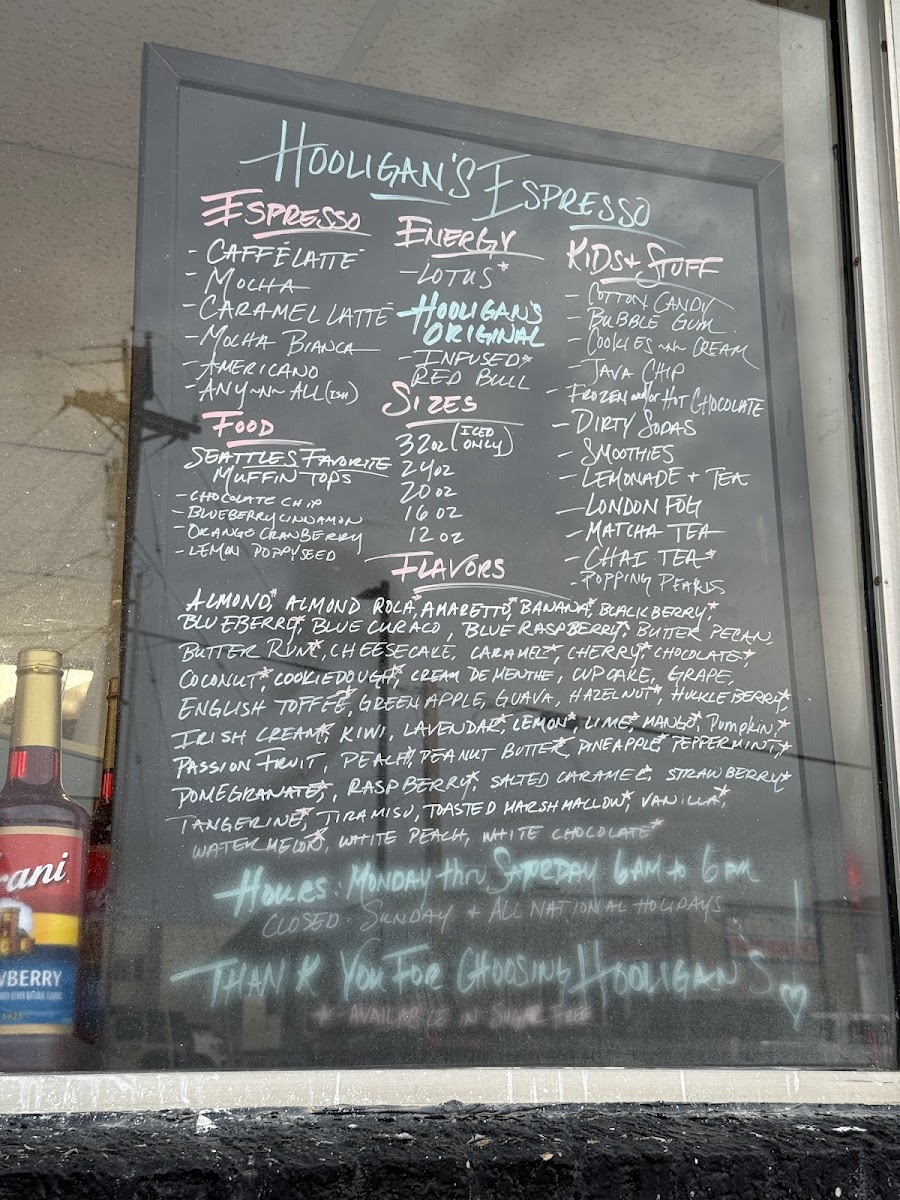 HOOLIGAN'S ESPRESSO
ESPRESSO
- CAFFÉ LATTÉ
- MOCHA
- CARAMEL LATTÉ
- MOCHA BIANCA
- AMERICANO
- ANY ~n~ ALL (ISH)
FOOD
SEATTLES FAVORITE
MUFFIN TOPS
- CHOCOLATE CHIP
- BLUEBERRY CINNAMON
- ORANGE CRANBERRY
- LEMON POPPYSEED
ENERGY
- LOTUS*
- HOOLIGAN'S
ORIGINAL
- INFUSED*
RED BULL
SIZES
32oz (ICED ONLY)
24oz
20 oz
16 oz
12 oz
KIDS + STUFF
- COTTON CANDY
- BUBBLE GUM
- COOKIES ~n~ CREAM
- JAVA CHIP
- FROZEN and/or HOT CHOCOLATE
- DIRTY SODAS
- SMOOTHIES
- LEMONADE + TEA
- LONDON FOG
- MATCHA TEA
- CHAI TEA*
- POPPING PEARLS
FLAVORS
ALMOND*, ALMOND ROCA, AMARETTO*, BANANA*, BLACKBERRY*,
BLUEBERRY*, BLUE CURACO, BLUE RASPBERRY*, BUTTER PECAN,
BUTTER RUM*, CHEESECAKE, CARAMEL*, CHERRY*, CHOCOLATE*,
COCONUT*, COOKIE DOUGH*, CREAM DE MENTHE, CUPCAKE, GRAPE,
ENGLISH TOFFEE*, GREEN APPLE, GUAVA, HAZELNUT*, HUCKLEBERRY*
IRISH CREAM*, KIWI, LAVENDAR*, LEMON*, LIME*, MANGO*, PUMPKIN,*
PASSION FRUIT, PEACH*, PEANUT BUTTER*, PINEAPPLE*, PEPPERMINT,*
POMEGRANATE*, RASPBERRY*, SALTED CARAMEL*, STRAWBERRY*
TANGERINE*, TIRAMISU, TOASTED MARSHMALLOW*, VANILLA*,
WATERMELON*, WHITE PEACH, WHITE CHOCOLATE*
HOURS: MONDAY thru SATURDAY 6AM to 6PM
CLOSED: SUNDAY + ALL NATIONAL HOLIDAYS
THANK YOU FOR CHOOSING HOOLIGAN'S!
* AVAILABLE IN SUGAR FREE
rani
WBERRY
1925